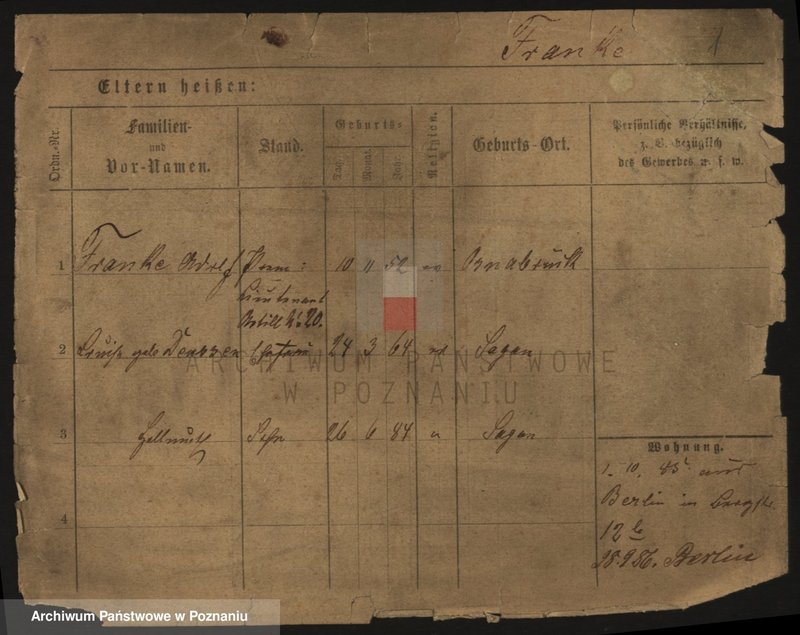 Franke 1
Eltern heißen:
Ordn.-Nr.
Familien-
und
Vor-Namen.
Stand.
Geburts-
Tag.
Monat.
Jahr.
Religion.
Geburts-Ort.
Persönliche Verhältnisse,
z. B. bezüglich
des Gewerbes u. s. w.
1 Franke Adolf Prem: 10 11 52 ev Osnabrück
Lieutenant
Artill 20.
2 Louise geb. 24 3 64 Sagan
ARCHIWUM PAŃSTWOWE
W POZNANIU
3 Hellmuth Sohn 26 6 84 Sagan
4
Wohnung.
1. 10. 85 aus
Berlin in
12
28.9.86. Berlin
Archiwum Państwowe w Poznaniu